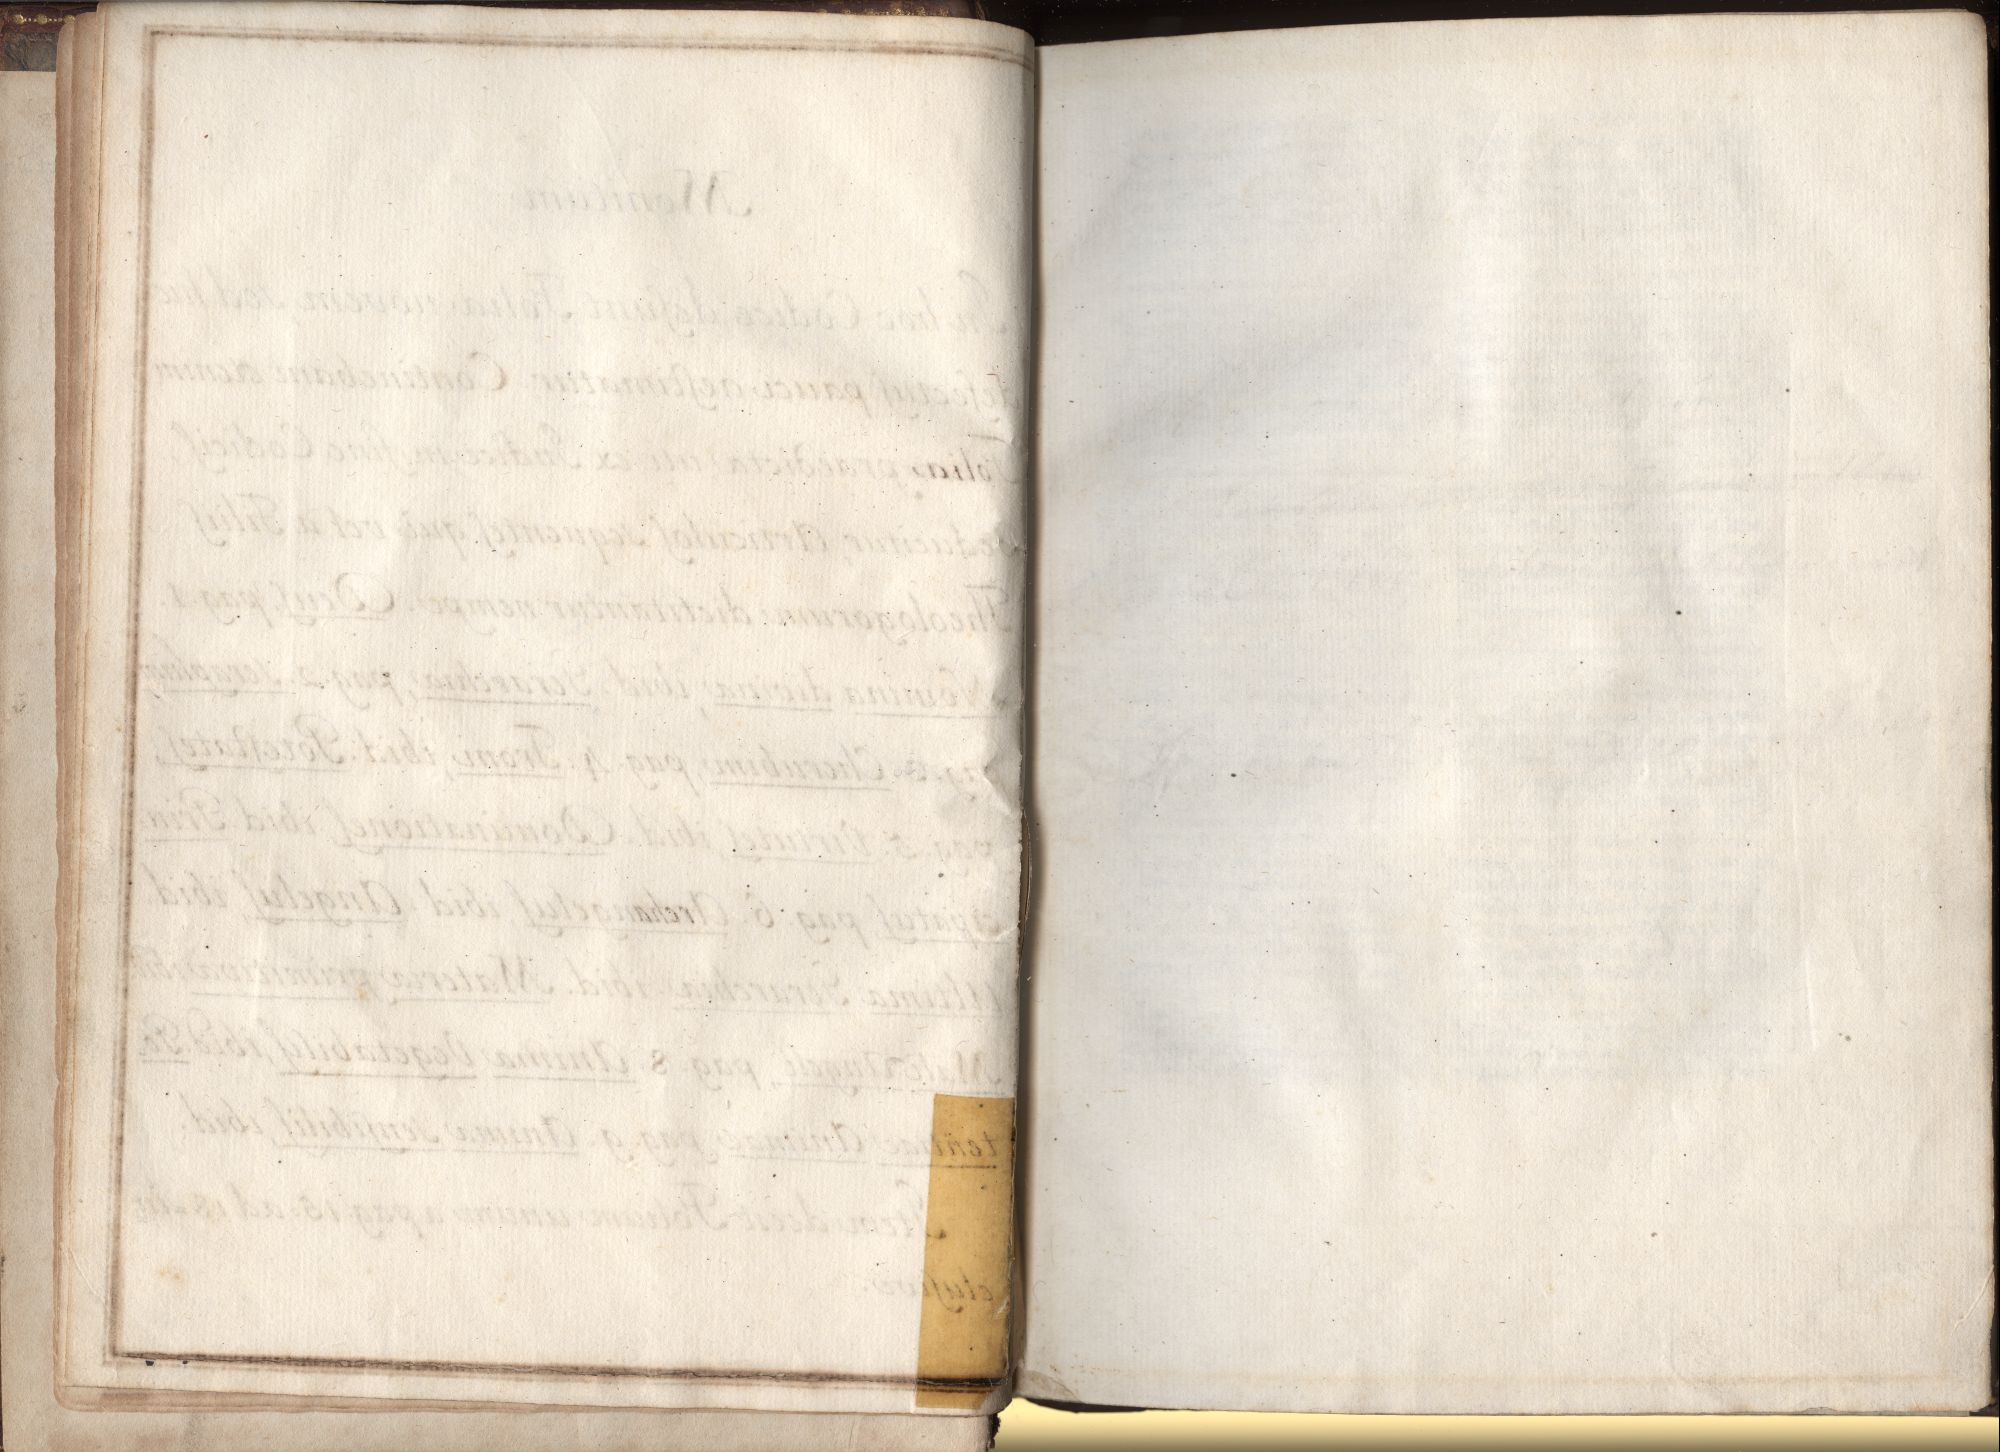 Monitum
In hoc Codice desunt Folia novem, sed hic
defectus pauci aestimatur. Continebant etenim
Folia praedicta uti ex Indice in fine Codicis,
deducitur, Articulos sequentes qui vel a Filiis
Theologorum dictitantur nempe. Deus pag. 1.
Nomina divina, ibid. Ierarchia, pag. 2. Seraphin
pag. 3. Cherubim, pag. 4. Troni, ibid. Potestates,
pag. 5. Virtutes ibid. Dominationes ibid Prin
cipatus pag. 6. Archangelus ibid. Angelus ibid.
Ultima Ierarchia. ibid. Materia primitiva
Mali Angeli, pag. 8. Anima Vegetabilis, ibid Po
tentiae Animae pag. 9. Anima sensibilis, ibid.
Item deest Folium unum a pag. 18. ad in
clusive.